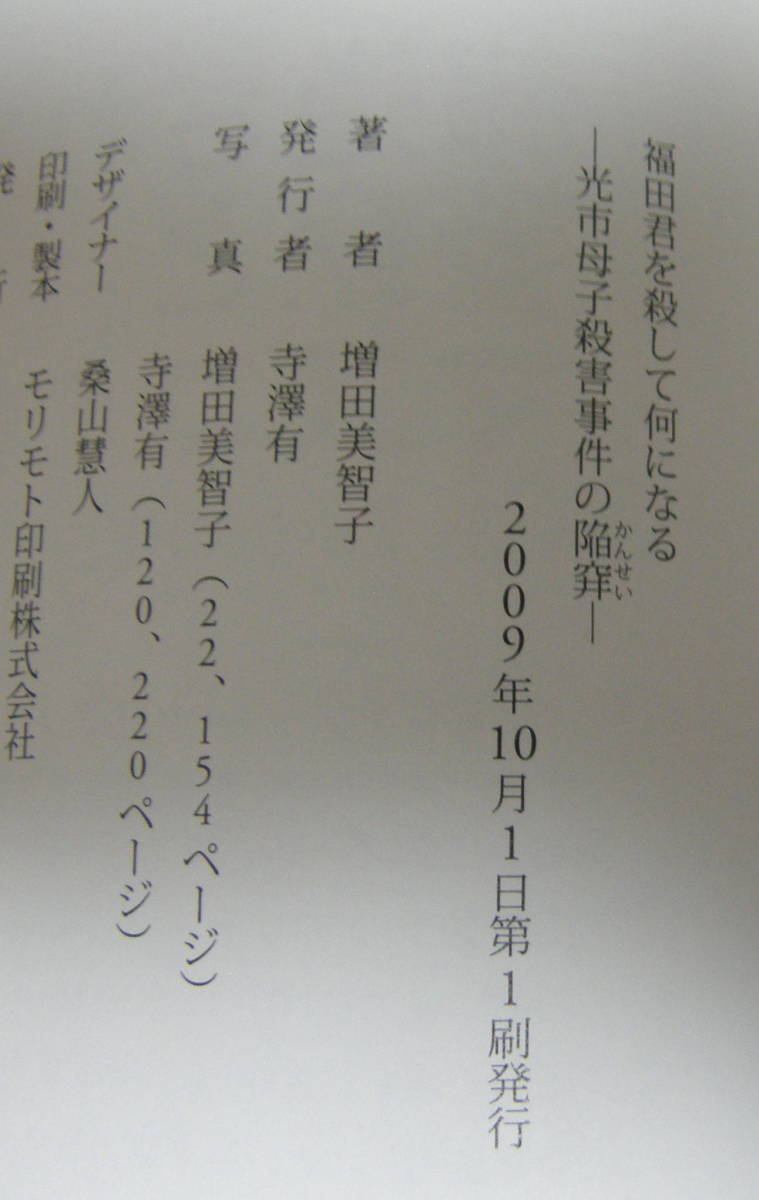 福田君を殺して何になる
―光市母子殺害事件の陥穽―
かんせい
2009年10月1日第1刷発行
著者 増田美智子
発行者 寺澤有
写真 増田美智子（22、154ページ）
寺澤有（120、220ページ）
デザイナー 桑山慧人
印刷・製本 モリモト印刷株式会社
発行